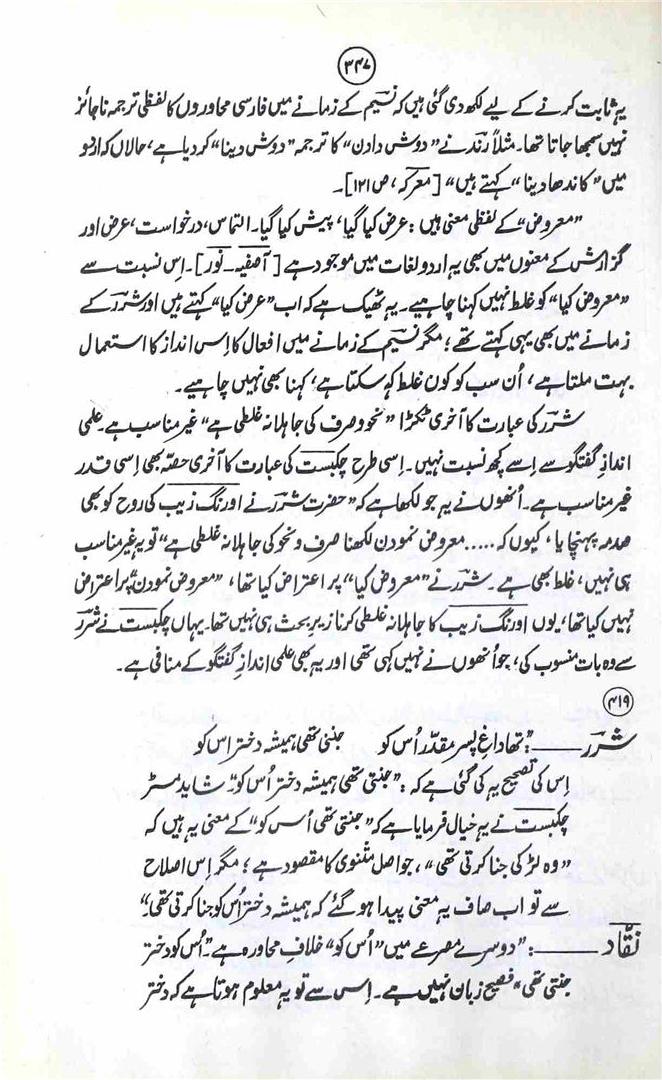 ۳۴۷
یہ ثابت کرنے کے لیے لکھ دی گئی ہیں کہ نسیمؔ کے زمانے میں فارسی محاوروں کا لفظی ترجمہ ناجائز
نہیں سمجھا جاتا تھا۔ مثلاً رندؔ نے "دوش دادن" کا ترجمہ "دوش دینا" کر دیا ہے، حالاں کہ اردو
میں "کاندھا دینا" کہتے ہیں" [معرکہ، ص ۱۲۱]۔
"معروض" کے لفظی معنی ہیں: عرض کیا گیا، پیش کیا گیا۔ التماس، درخواست، عرض اور
گزارش کے معنوں میں بھی یہ اردو لغات میں موجود ہے [آصفیہ۔ نور]۔ اِس نسبت سے
"معروض کیا" کو غلط نہیں کہنا چاہیے۔ یہ ٹھیک ہے کہ اب "عرض کیا" کہتے ہیں اور شررؔ کے
زمانے میں بھی یہی کہتے تھے؛ مگر نسیمؔ کے زمانے میں افعال کا اِس انداز کا استعمال
بہت ملتا ہے، اُن سب کو کون غلط کہہ سکتا ہے، کہنا بھی نہیں چاہیے۔
شررؔ کی عبارت کا آخری ٹکڑا "نحو و صرف کی جاہلانہ غلطی ہے" غیر مناسب ہے۔ علمی
اندازِ گفتگو سے اِسے کچھ نسبت نہیں۔ اِسی طرح چکبستؔ کی عبارت کا آخری حصّہ بھی اِسی قدر
غیر مناسب ہے۔ اُنھوں نے یہ جو لکھا ہے کہ "حضرت شررؔ نے اورنگ زیب کی روح کو بھی
صدمہ پہنچایا، کیوں کہ ..... معروض نمودن لکھنا صرف و نحو کی جاہلانہ غلطی ہے" تو یہ غیر مناسب
ہی نہیں، غلط بھی ہے۔ شررؔ نے "معروض کیا" پر اعتراض کیا تھا، "معروض نمودن" پر اعتراض
نہیں کیا تھا، یوں اورنگ زیب کا جاہلانہ غلطی کرنا زیرِ بحث ہی نہیں تھا۔ یہاں چکبستؔ نے شررؔ
سے وہ بات منسوب کی، جو اُنھوں نے نہیں کہی تھی اور یہ بھی علمی اندازِ گفتگو کے منافی ہے۔
۴۱۹
شررؔ ــــــ: "تھا داغِ پسر مقدّر اُس کو جنتی تھی ہمیشہ دختر اس کو
اِس کی تصحیح یہ کی گئی ہے کہ: "جنتی تھی ہمیشہ دختر اُس کو"۔ شاید مسٹر
چکبستؔ نے یہ خیال فرمایا ہے کہ "جنتی تھی اُس کو" کے معنی یہ ہیں کہ
"وہ لڑکی جنا کرتی تھی"، جو اصل مثنوی کا مقصود ہے؛ مگر اِس اصلاح
سے تو اب صاف یہ معنی پیدا ہو گئے کہ ہمیشہ دختر اُس کو جنا کرتی تھی۔"
نقّاد ــــــ: "دوسرے مصرعے میں "اُس کو" خلافِ محاورہ ہے۔ "اُس کو دختر
جنتی تھی" فصیح زبان نہیں ہے۔ اِس سے تو یہ معلوم ہوتا ہے کہ دختر